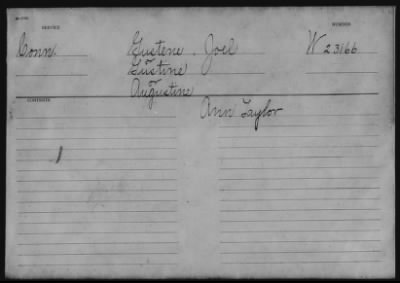 SERVICE NUMBER
Conn. Gustene, Joel W 23166
or
Gustine
or
Augustine
CONTENTS
Ann Taylor
1